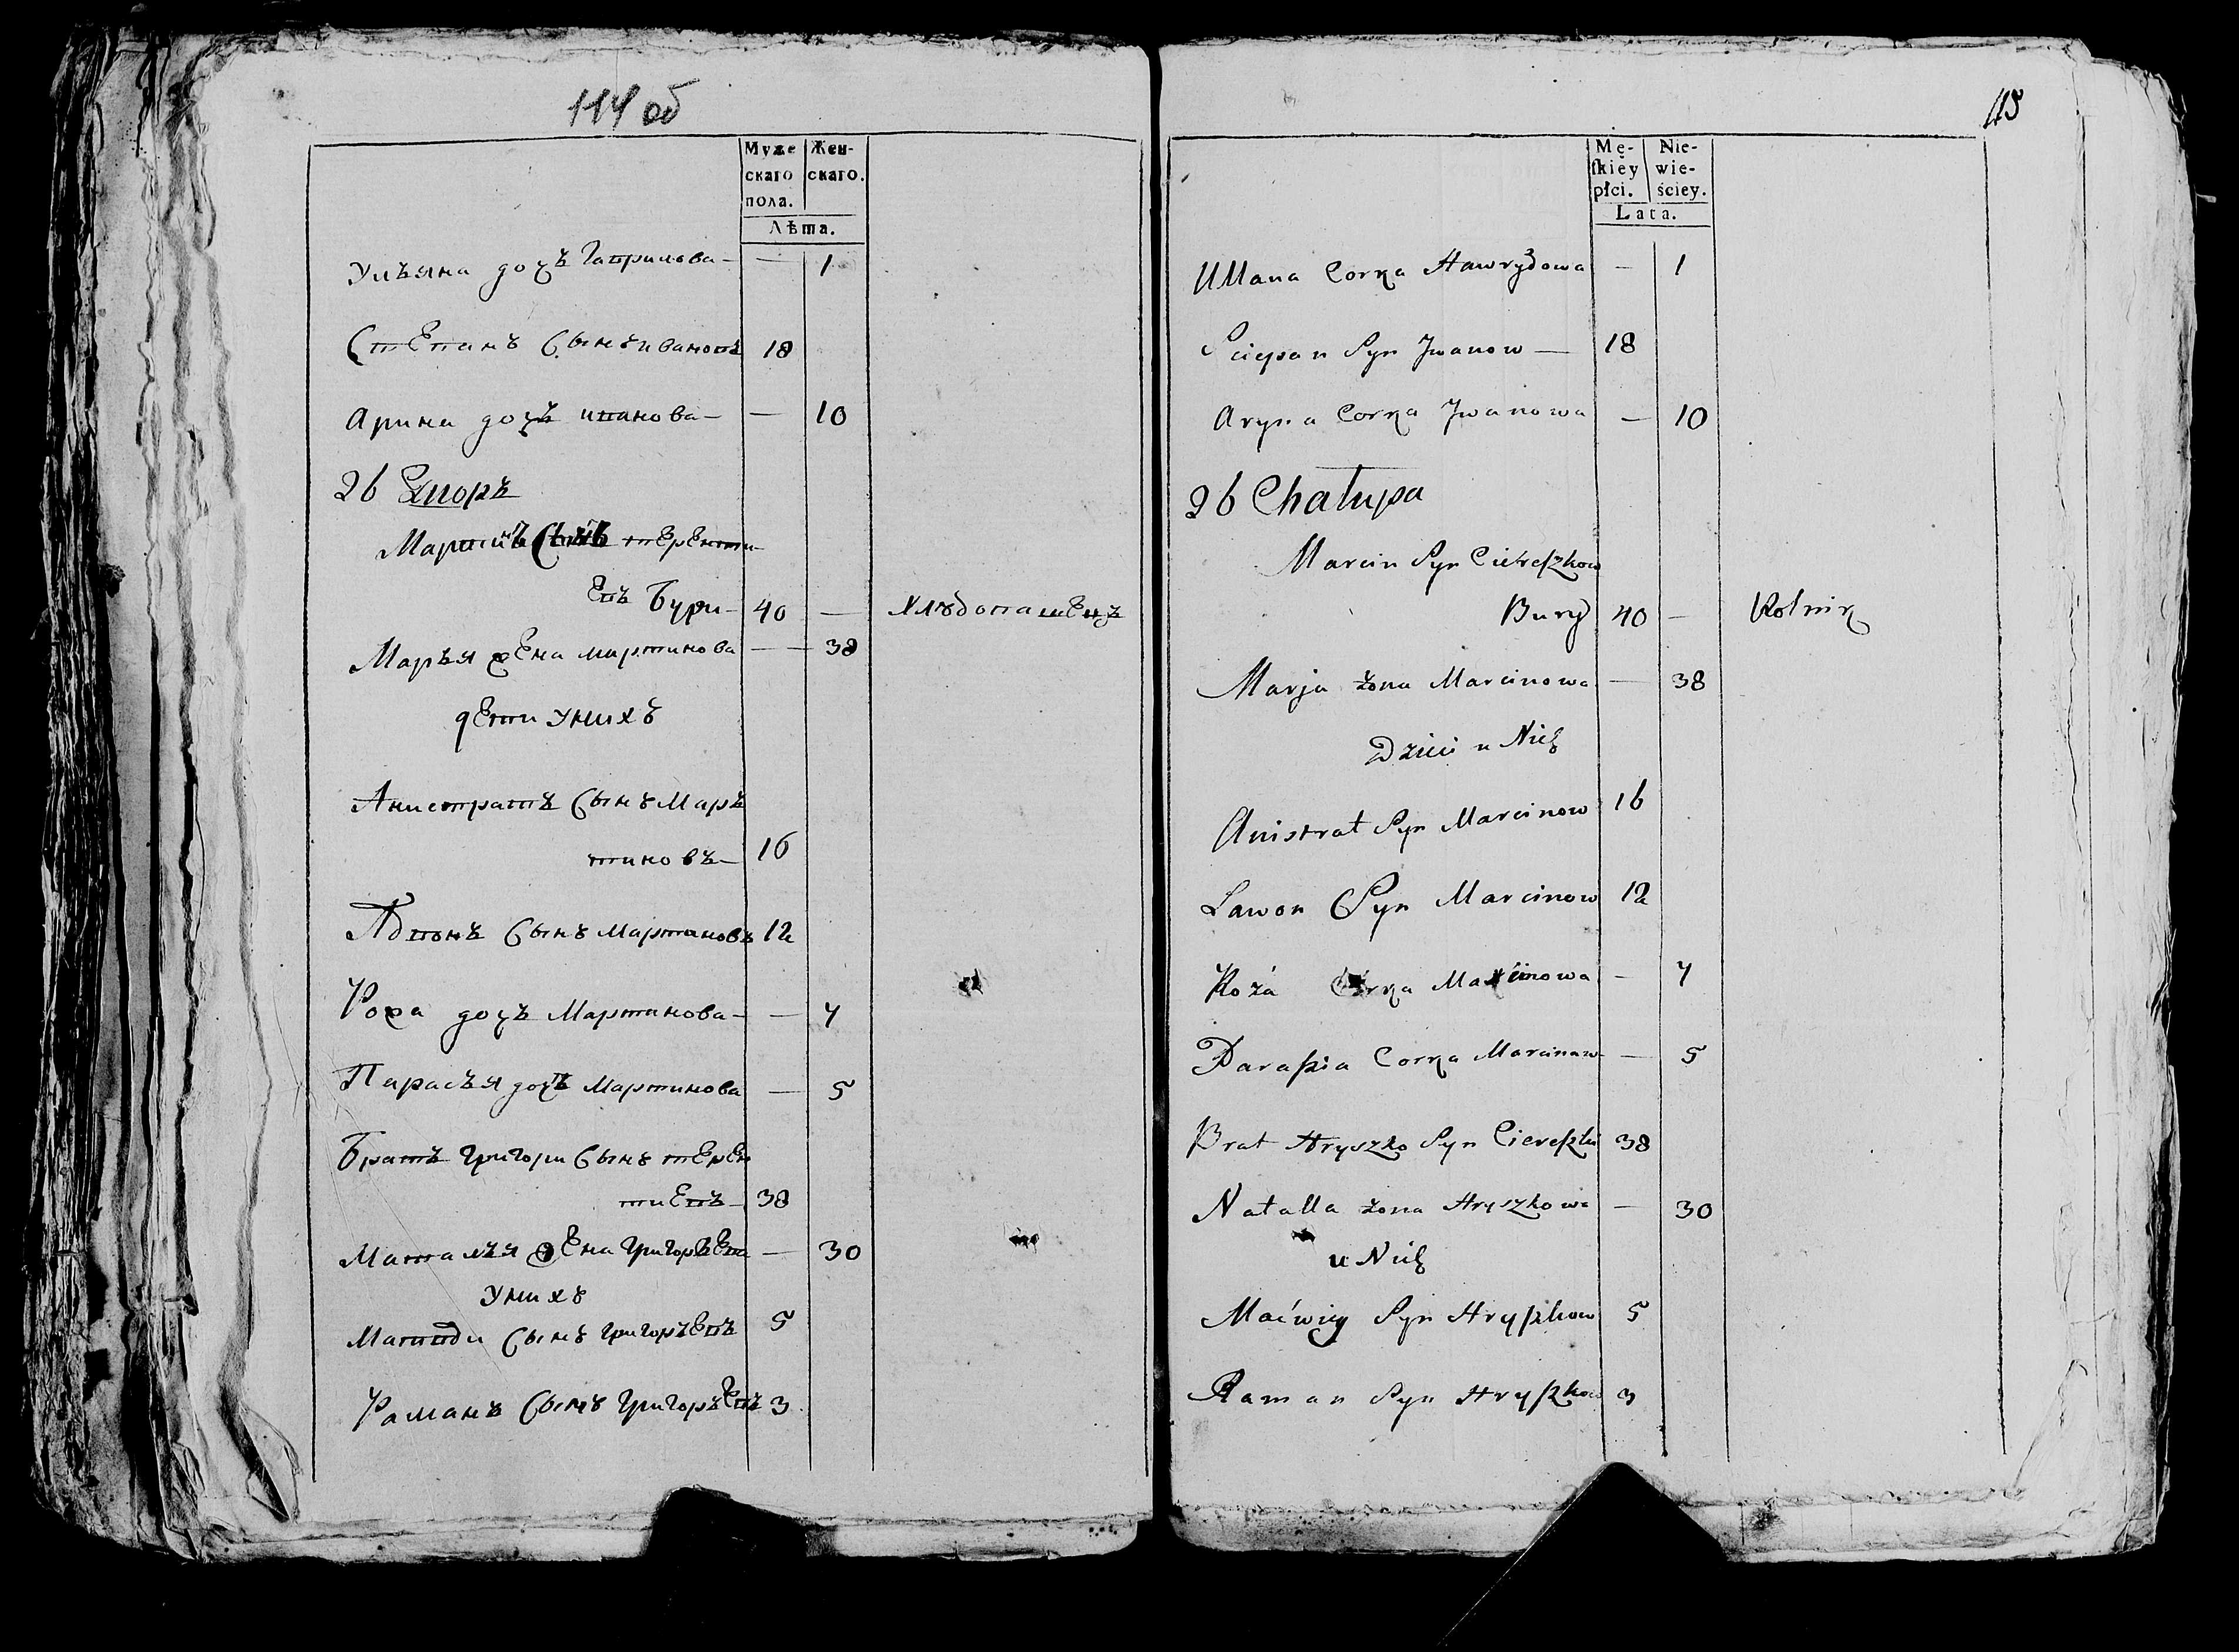 114 об
Муже
скаго
пола.
Жен-
скаго.
Лѣта.
Ульяна дочъ Гаврилова — — 1
Степанъ Сынъ ивановъ 18
Арина дочъ иванова — — 10
26 Дворъ
Мартинъ Сынъ терентi-
евъ Бури — 40 — Хлѣбопашецъ
Марья жена мартинова — — 38
дети унихъ
Анистратъ Сынъ Маръ
тиновъ — 16
Сынъ Мартиновъ 12
Рожа дочъ Мартинова — — 7
Парасъя дочъ Мартинова — 5
Братъ григори Сынъ терен
тиевъ — 38
Маталья жена григоръева — 30
унихъ
Матвѣи Сынъ григоръевъ 5
Романъ Сынъ григоръевъ 3
115
Mę-
ſkiéy
płci.
Nie-
wie-
ściey.
Lata.
Ullana Corka Hawryłowa — 1
Sciepan Syn Jwanow — 18
Aryna Corka Jwanowa — 10
26 Chałupa
Marcin Syn Ciereſzkow
Bury 40 — Rolnik
Marja żona Marcinowa — 38
Dzieci u Nich
Anistrat Syn Marcinow 16
Lawon Syn Marcinow 12
Roża Corka Marcinowa — 7
Paraſzia Corka Marcinow — 5
Brat Hryszko Syn 38
Natalla żona Hryszkowa — 30
u Nich
Maćwiey Syn Hryſzkow 5
Raman Syn Hryſzkow 3